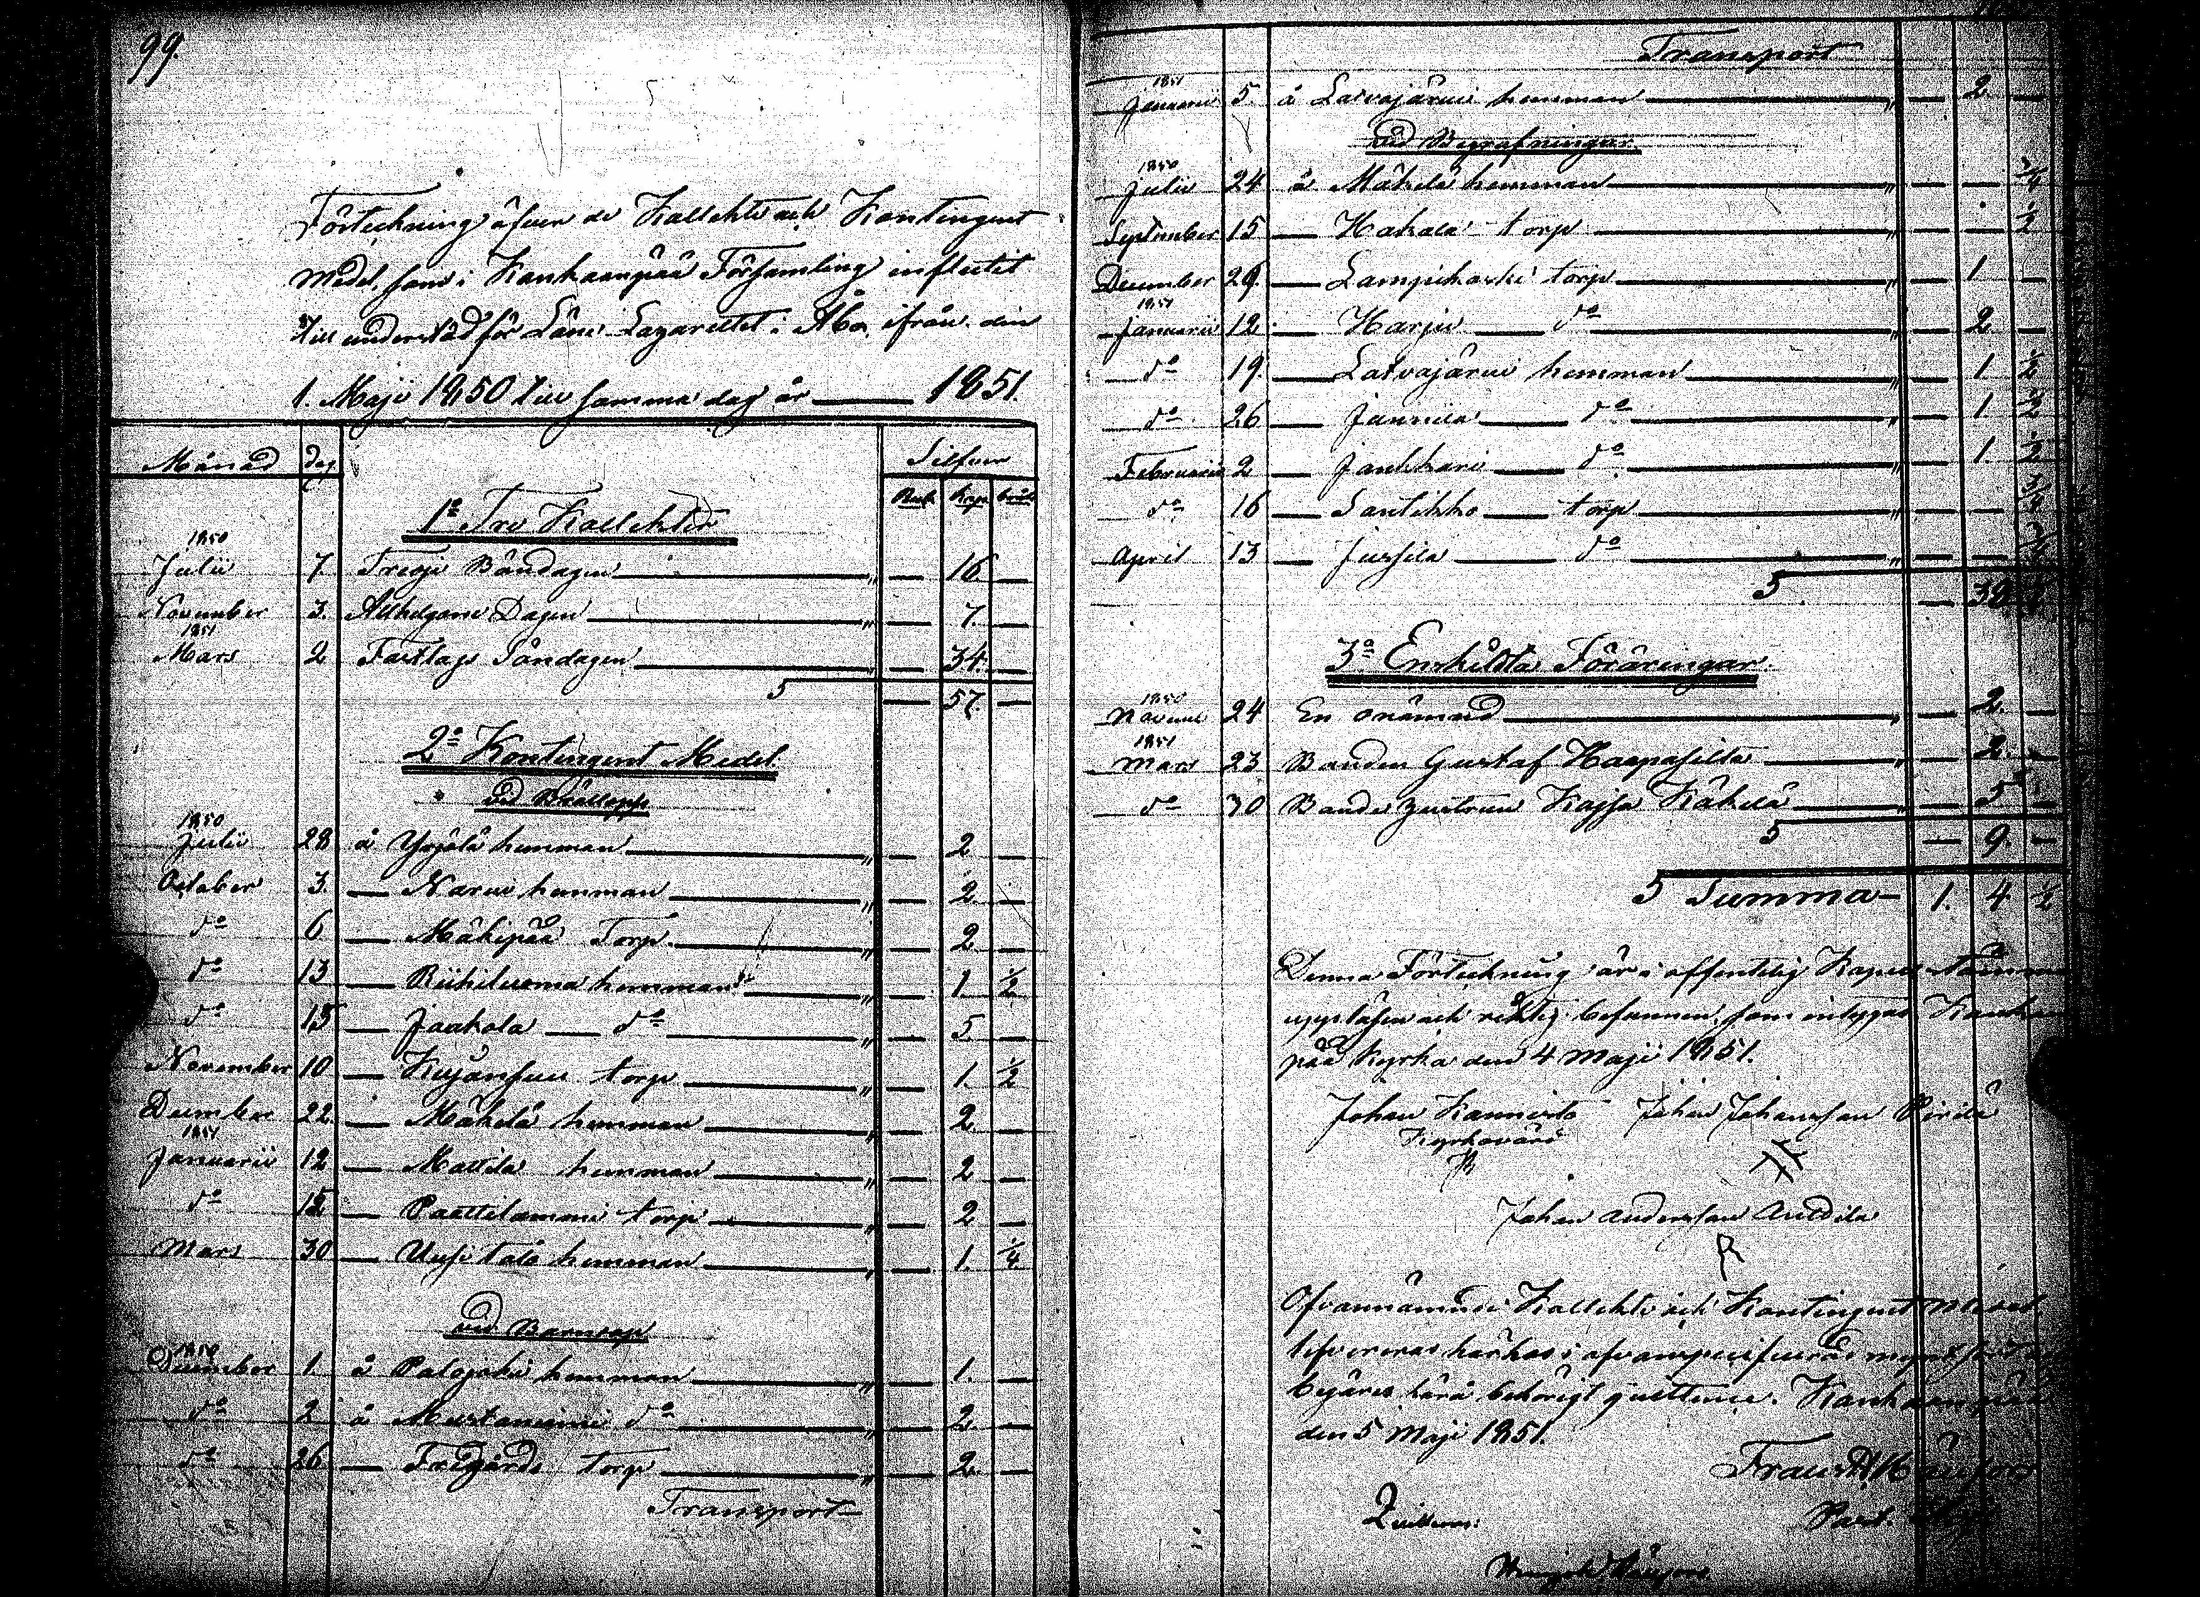 99.
Förteckning öfver de Kollekt och Kontingent
Medel, som i Kankaanpää Församling influtit
till understöd för Läns Lazarettet i Åbo, ifrån den
1. Maji 1850 till samma dag år — 1851.
Månad dag Silfver
Rub. Kop.
1º Tre Kollekter
1850
Julii 7 Tredje Böndagen — „ — 16 —
November 3. Allhelgona Dagen — „ — 7. —
1851
Mars 2 Fastlags Söndagen — „ — 34. —
S — 57. —
2º Kontingent Medel.
vid Bröllopp
1850
Julii 28 å Yrjölä hemman — „ — 2 —
October 3. — Narvi hemman — „ — 2. —
dº 6 — Mäkipää Torp — „ — 2 —
dº 13 — Riihiluoma hemman — „ — 1. ½
dº 15 — Jaakola — dº — „ — 5. —
November 10 — Kujansuu torp — „ — 1. ½
December 22 — Mäkelä hemman — „ — 2. —
1851
Januarii 12 — Mattila hemman — „ — 2 —
dº 15 — torp — „ — 2 —
Mars 30 — Uusi talo hemman — „ — 1. ¼
vid Barnsop
1850
December 1. å Palojoki hemman — „ — 1. —
dº 2 å Mustaniemi dº — „ — 2. —
dº 26 — Fredgårds torp — „ — 2. —
Transport —
Transport
1851
Januarii 5. å Latvajärvi hemman — „ — 2. —
vid Begrafningar.
1850
Julii 24 å Mäkelä hemman — „ — —
September 15 — Hakala torp — „ — — ½
December 29. — Lampikoski torp — „ — 1 —
1851
Januarii 12 — Harju — dº — „ — 2 —
dº 19. — Latvajärvi hemman — „ — 1. ½
dº 26 — Jannila — dº — „ — 1
Februarii 2 — Jankkari — dº — „ — 1. ½
dº 16 — Santikko — torp — „ — —
April 13 — Jussila — dº — „ — —
S — 38
3º Enskildta Föräringar.
1850
Novemb 24 En onämnd — „ — 2. —
1851
Mars 23 Bonden Gustaf Haapasilta — „ — 2. —
dº 30 Bonde hustrun Kajsa Käkelä — „ — 5 —
S — 9. —
S Summa — 1. 4 ½
Denna Förteckning är i offentelig
uppläsen och riktig befunnen, som intygas Kankaan
pää Kyrka den 4 Maji 1851.
Johan Kannisto Johan Johansson Pirilä
Kyrkovärd
Johan Andersson Anttila
Ofvannämnde Kollekt och Kontingent Medel
lefvereras härhos i
begäres härå behörigt quittence. Kankaanpää
den 5 Maji 1851.
Past.
Quitteras: